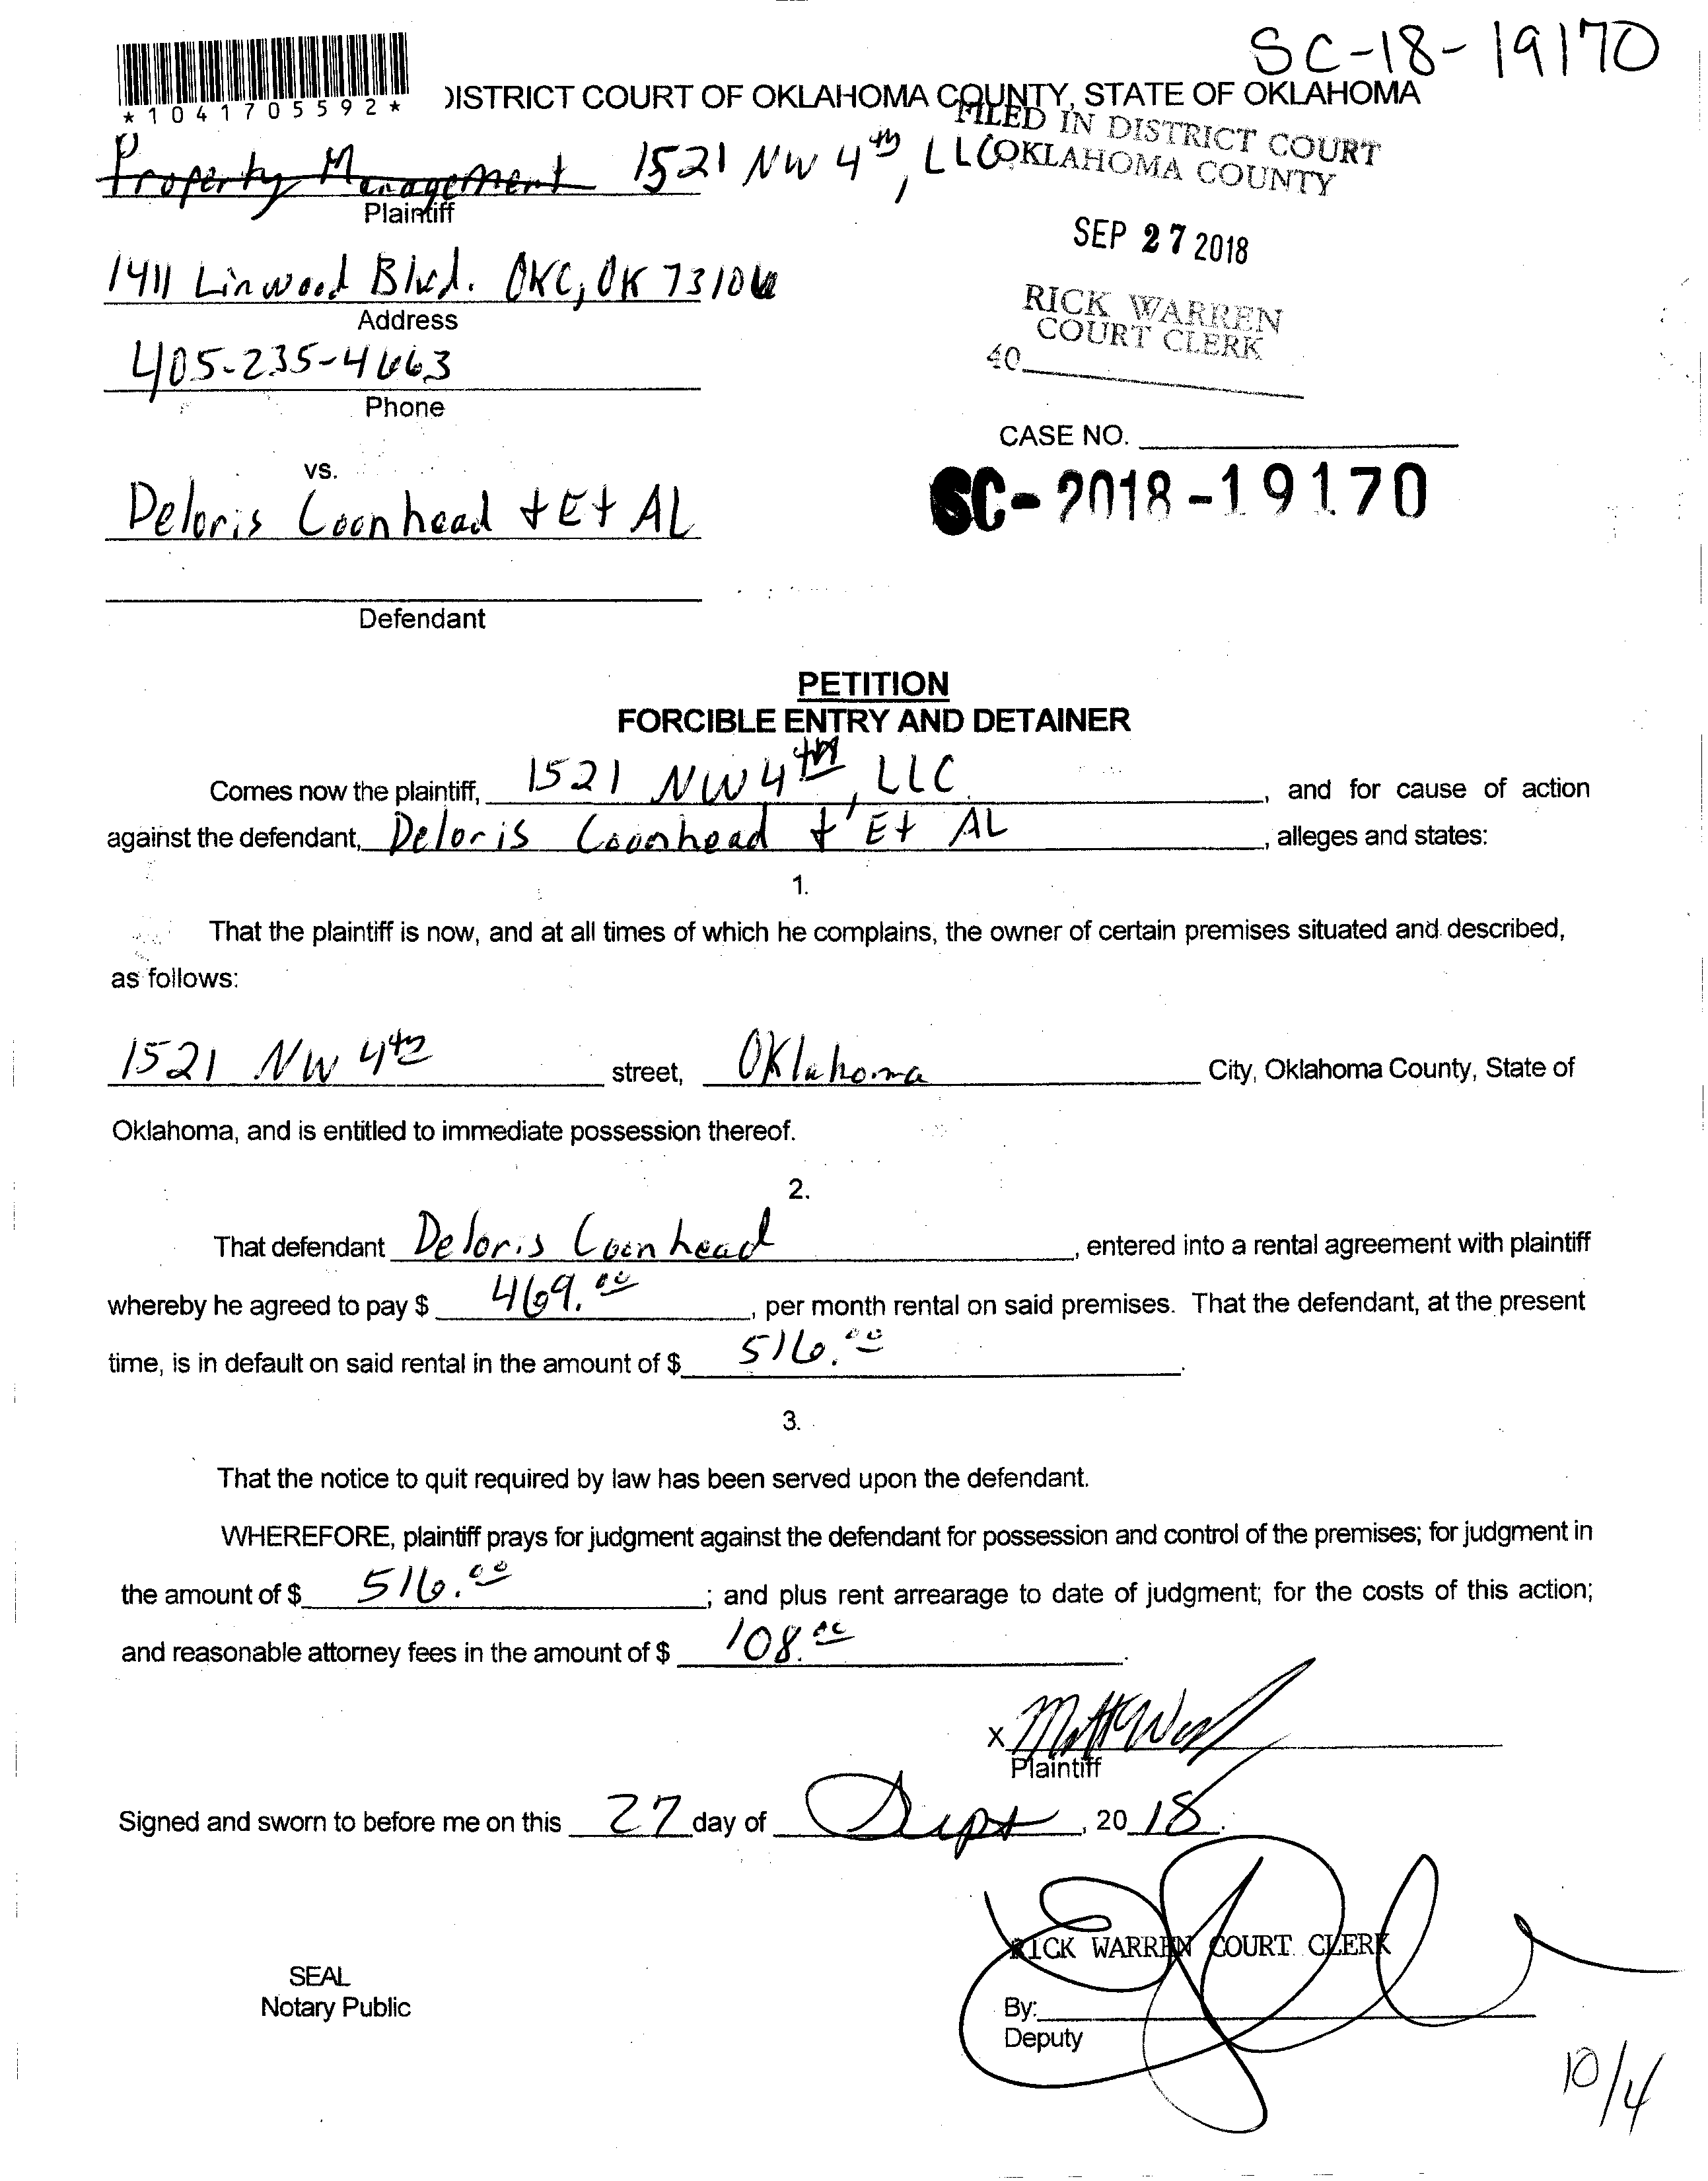 SC-18-19170
*1041705592*
DISTRICT COURT OF OKLAHOMA COUNTY, STATE OF OKLAHOMA
FILED IN DISTRICT COURT
OKLAHOMA COUNTY
Property Management 1521 NW 4th, LLC
Plaintiff
SEP 27 2018
1411 Linwood Blvd. OKC, OK 73106
Address
RICK WARREN
COURT CLERK
40
405-235-4663
Phone
CASE NO.
SC-2018-19170
vs.
Deloris Coonhead + Et AL
Defendant
PETITION
FORCIBLE ENTRY AND DETAINER
Comes now the plaintiff, 1521 NW 4th, LLC, and for cause of action
against the defendant, Deloris Coonhead + Et AL, alleges and states:
1.
That the plaintiff is now, and at all times of which he complains, the owner of certain premises situated and described,
as follows:
1521 NW 4th street, Oklahoma City, Oklahoma County, State of
Oklahoma, and is entitled to immediate possession thereof.
2.
That defendant Deloris Coonhead, entered into a rental agreement with plaintiff
whereby he agreed to pay $ 469.00, per month rental on said premises. That the defendant, at the present
time, is in default on said rental in the amount of $ 516.00.
3.
That the notice to quit required by law has been served upon the defendant.
WHEREFORE, plaintiff prays for judgment against the defendant for possession and control of the premises; for judgment in
the amount of $ 516.00; and plus rent arrearage to date of judgment; for the costs of this action;
and reasonable attorney fees in the amount of $ 108.00.
X
Plaintiff
Signed and sworn to before me on this 27 day of Sept, 2018.
RICK WARREN COURT CLERK
SEAL
Notary Public
By:
Deputy
10/4